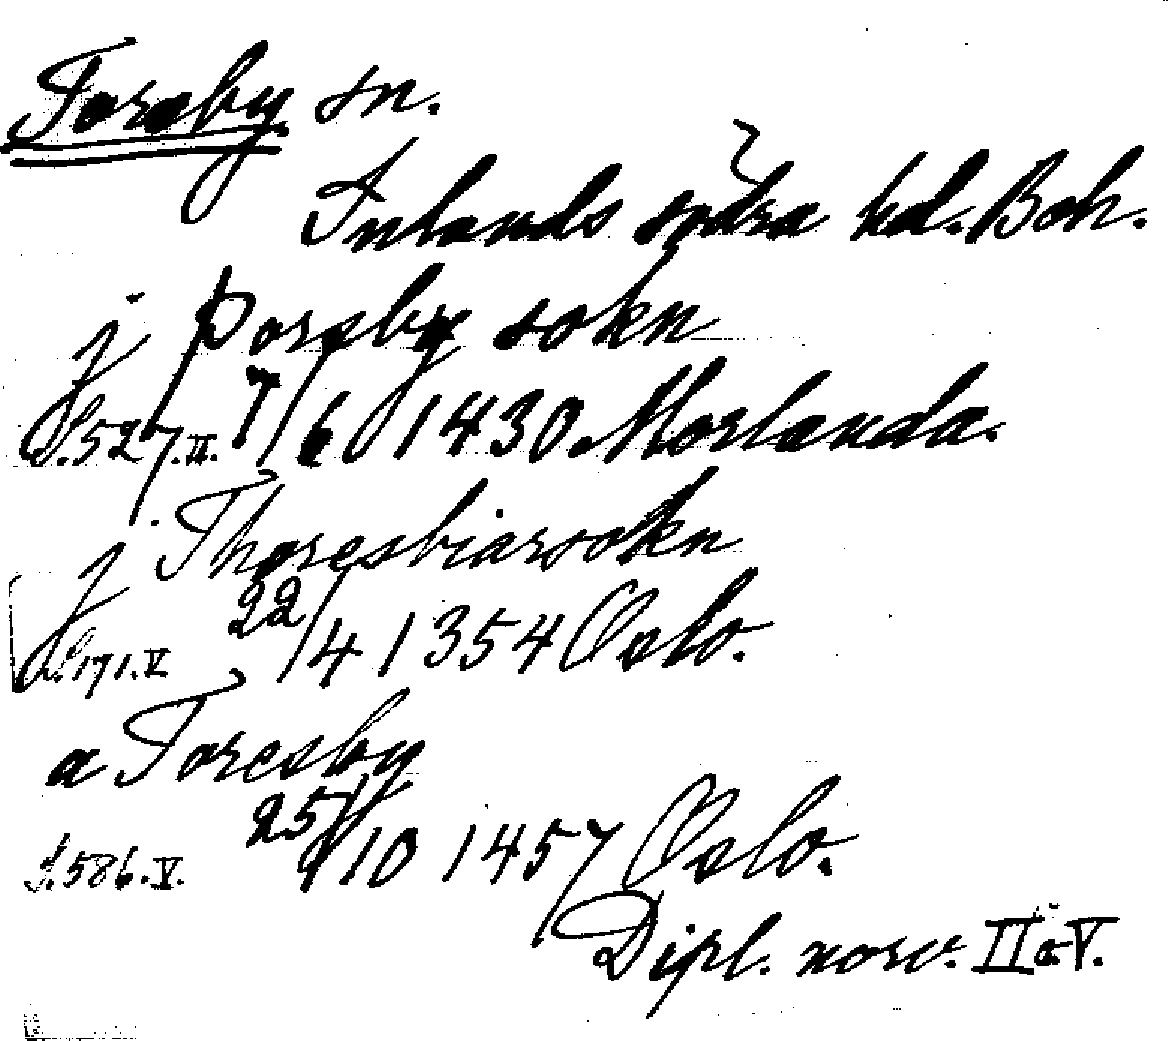 Torsby sn.
Inlands södra hd. Boh.
j Þorsby sokn
S.527.II. 7/6 1430 Morlanda.
j Thoresbiarsokn
S.171.V. 22/4 1354 Oslo.
a Toresby
S.586.V. 25/10 1457 Oslo.
Dipl. norv. II o. V.